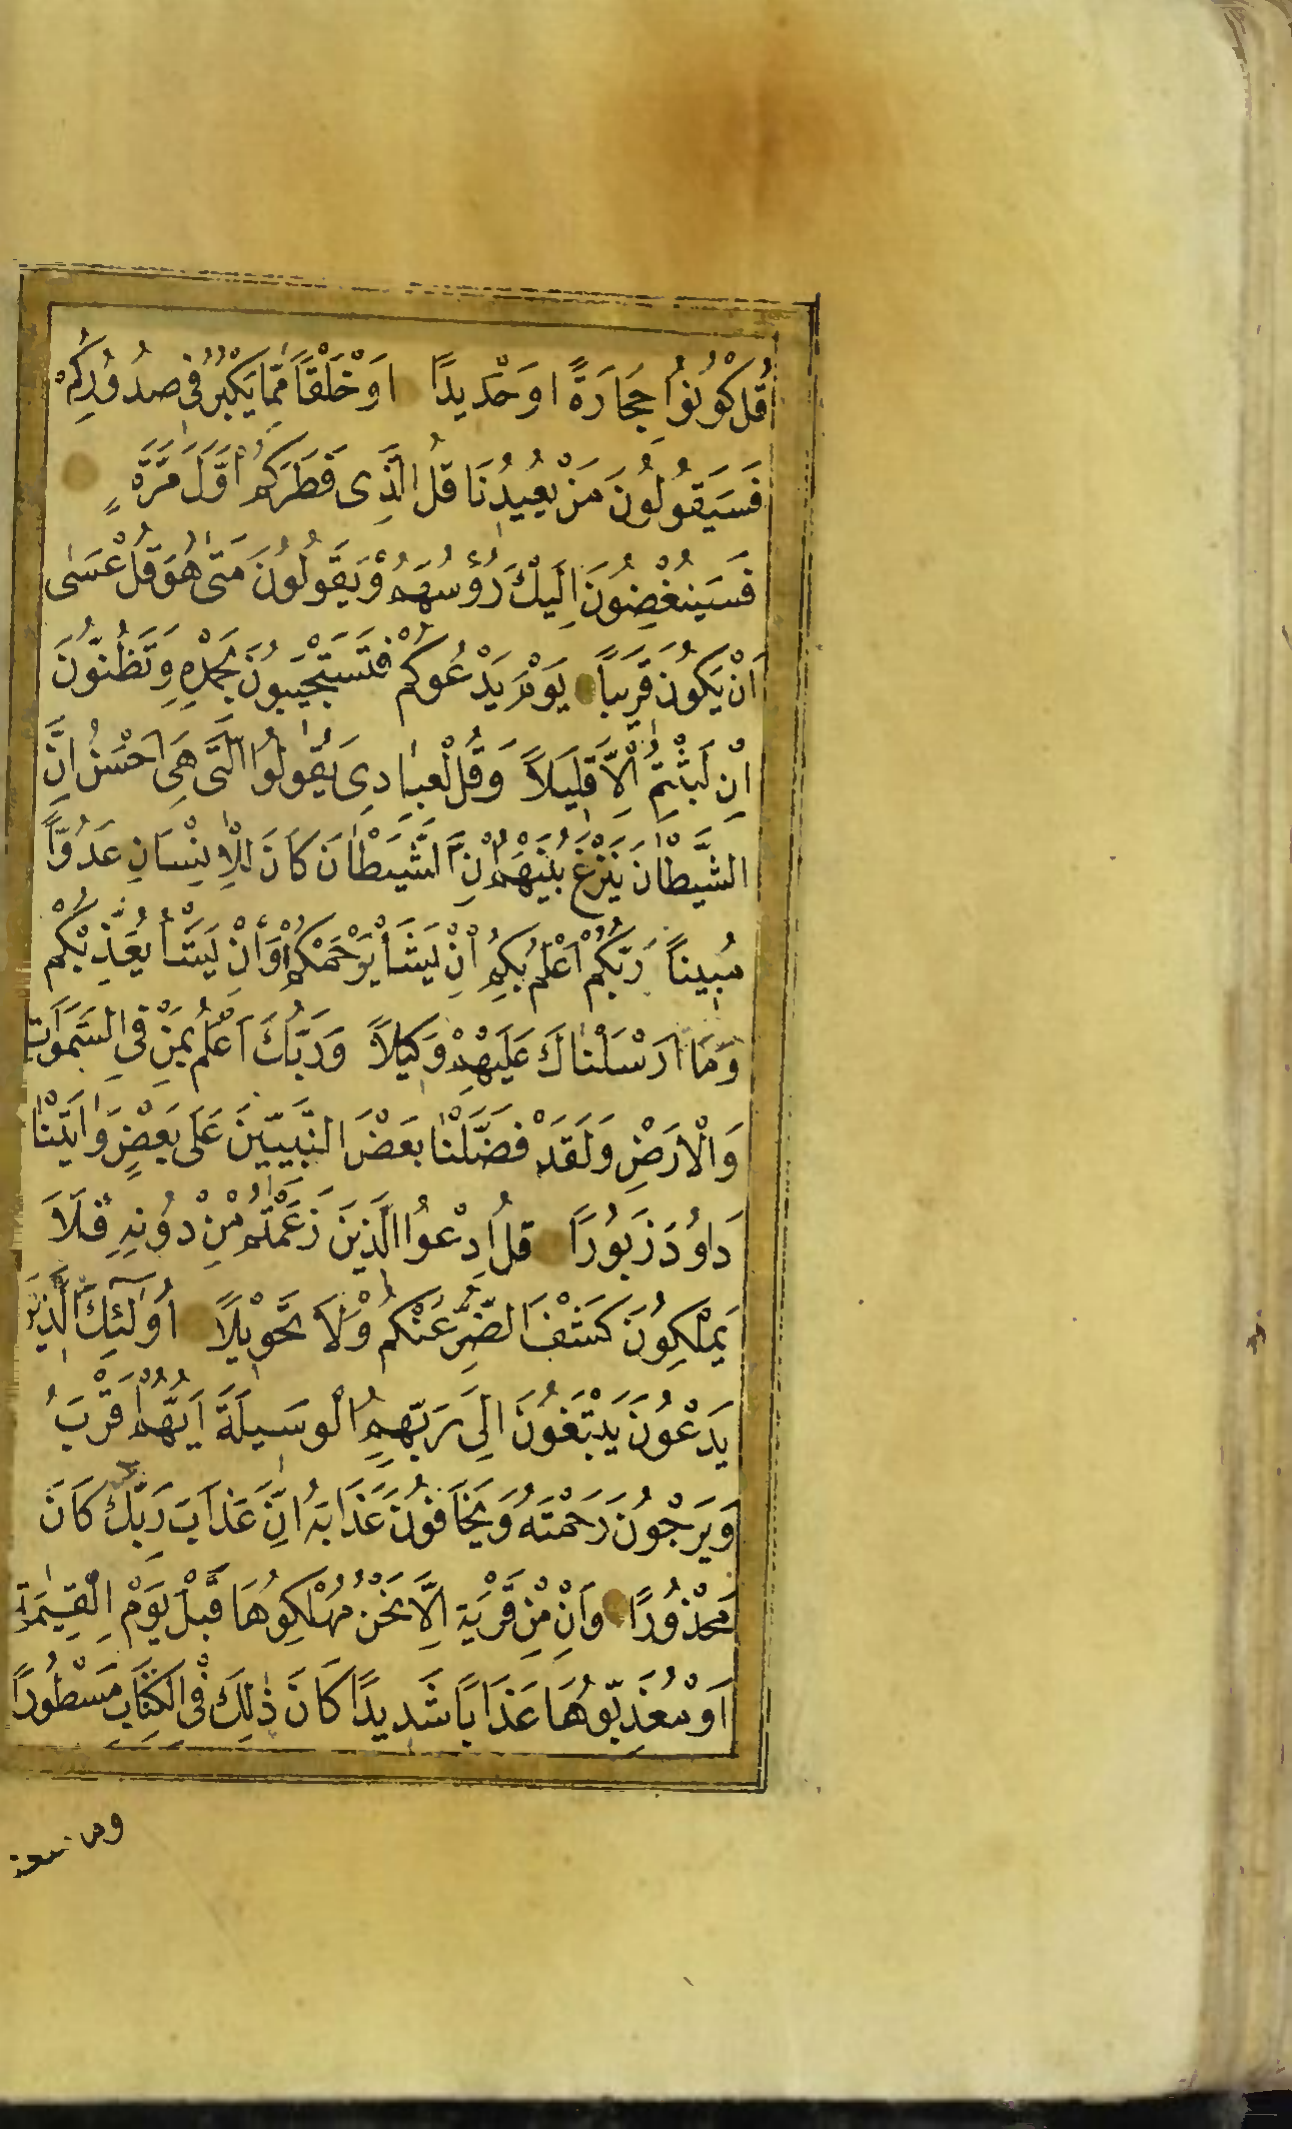 قُلْ كُونُوا حِجَارَةً اَوْ حَدِيدًا اَوْ خَلْقًا مِمَّا يَكْبُرُ فِى صُدُورِكُمْ
فَسَيَقُولُونَ مَنْ يُعِيدُنَا قُلِ الَّذِى فَطَرَكُمْ اَوَّلَ مَرَّةٍ
فَسَيُنْغِضُونَ اِلَيْكَ رُؤُسَهُمْ وَيَقُولُونَ مَتٰى هُوَ قُلْ عَسٰى
اَنْ يَكُونَ قَرِيبًا يَوْمَ يَدْعُوكُمْ فَتَسْتَجِيبُونَ بِحَمْدِهِ وَتَظُنُّونَ
اِنْ لَبِثْتُمْ اِلَّا قَلِيلًا وَقُلْ لِعِبَادِى يَقُولُوا الَّتِى هِىَ اَحْسَنُ اِنَّ
الشَّيْطَانَ يَنْزَغُ بَيْنَهُمْ اِنَّ الشَّيْطَانَ كَانَ لِلْاِنْسَانِ عَدُوًّا
مُبِينًا رَبُّكُمْ اَعْلَمُ بِكُمْ اِنْ يَشَأْ يَرْحَمْكُمْ اَوْ اِنْ يَشَأْ يُعَذِّبْكُمْ
وَمَا اَرْسَلْنَاكَ عَلَيْهِمْ وَكِيلًا وَرَبُّكَ اَعْلَمُ بِمَنْ فِى السَّمٰوَاتِ
وَالْاَرْضِ وَلَقَدْ فَضَّلْنَا بَعْضَ النَّبِيّٖنَ عَلٰى بَعْضٍ وَاٰتَيْنَا
دَاوُدَ زَبُورًا قُلِ ادْعُوا الَّذِينَ زَعَمْتُمْ مِنْ دُونِهِ فَلَا
يَمْلِكُونَ كَشْفَ الضُّرِّ عَنْكُمْ وَلَا تَحْوِيلًا اُولٰئِكَ الَّذِينَ
يَدْعُونَ يَبْتَغُونَ اِلٰى رَبِّهِمُ الْوَسِيلَةَ اَيُّهُمْ اَقْرَبُ
وَيَرْجُونَ رَحْمَتَهُ وَيَخَافُونَ عَذَابَهُ اِنَّ عَذَابَ رَبِّكَ كَانَ
مَحْذُورًا وَاِنْ مِنْ قَرْيَةٍ اِلَّا نَحْنُ مُهْلِكُوهَا قَبْلَ يَوْمِ الْقِيٰمَةِ
اَوْ مُعَذِّبُوهَا عَذَابًا شَدِيدًا كَانَ ذٰلِكَ فِى الْكِتَابِ مَسْطُورًا
وما منعنا